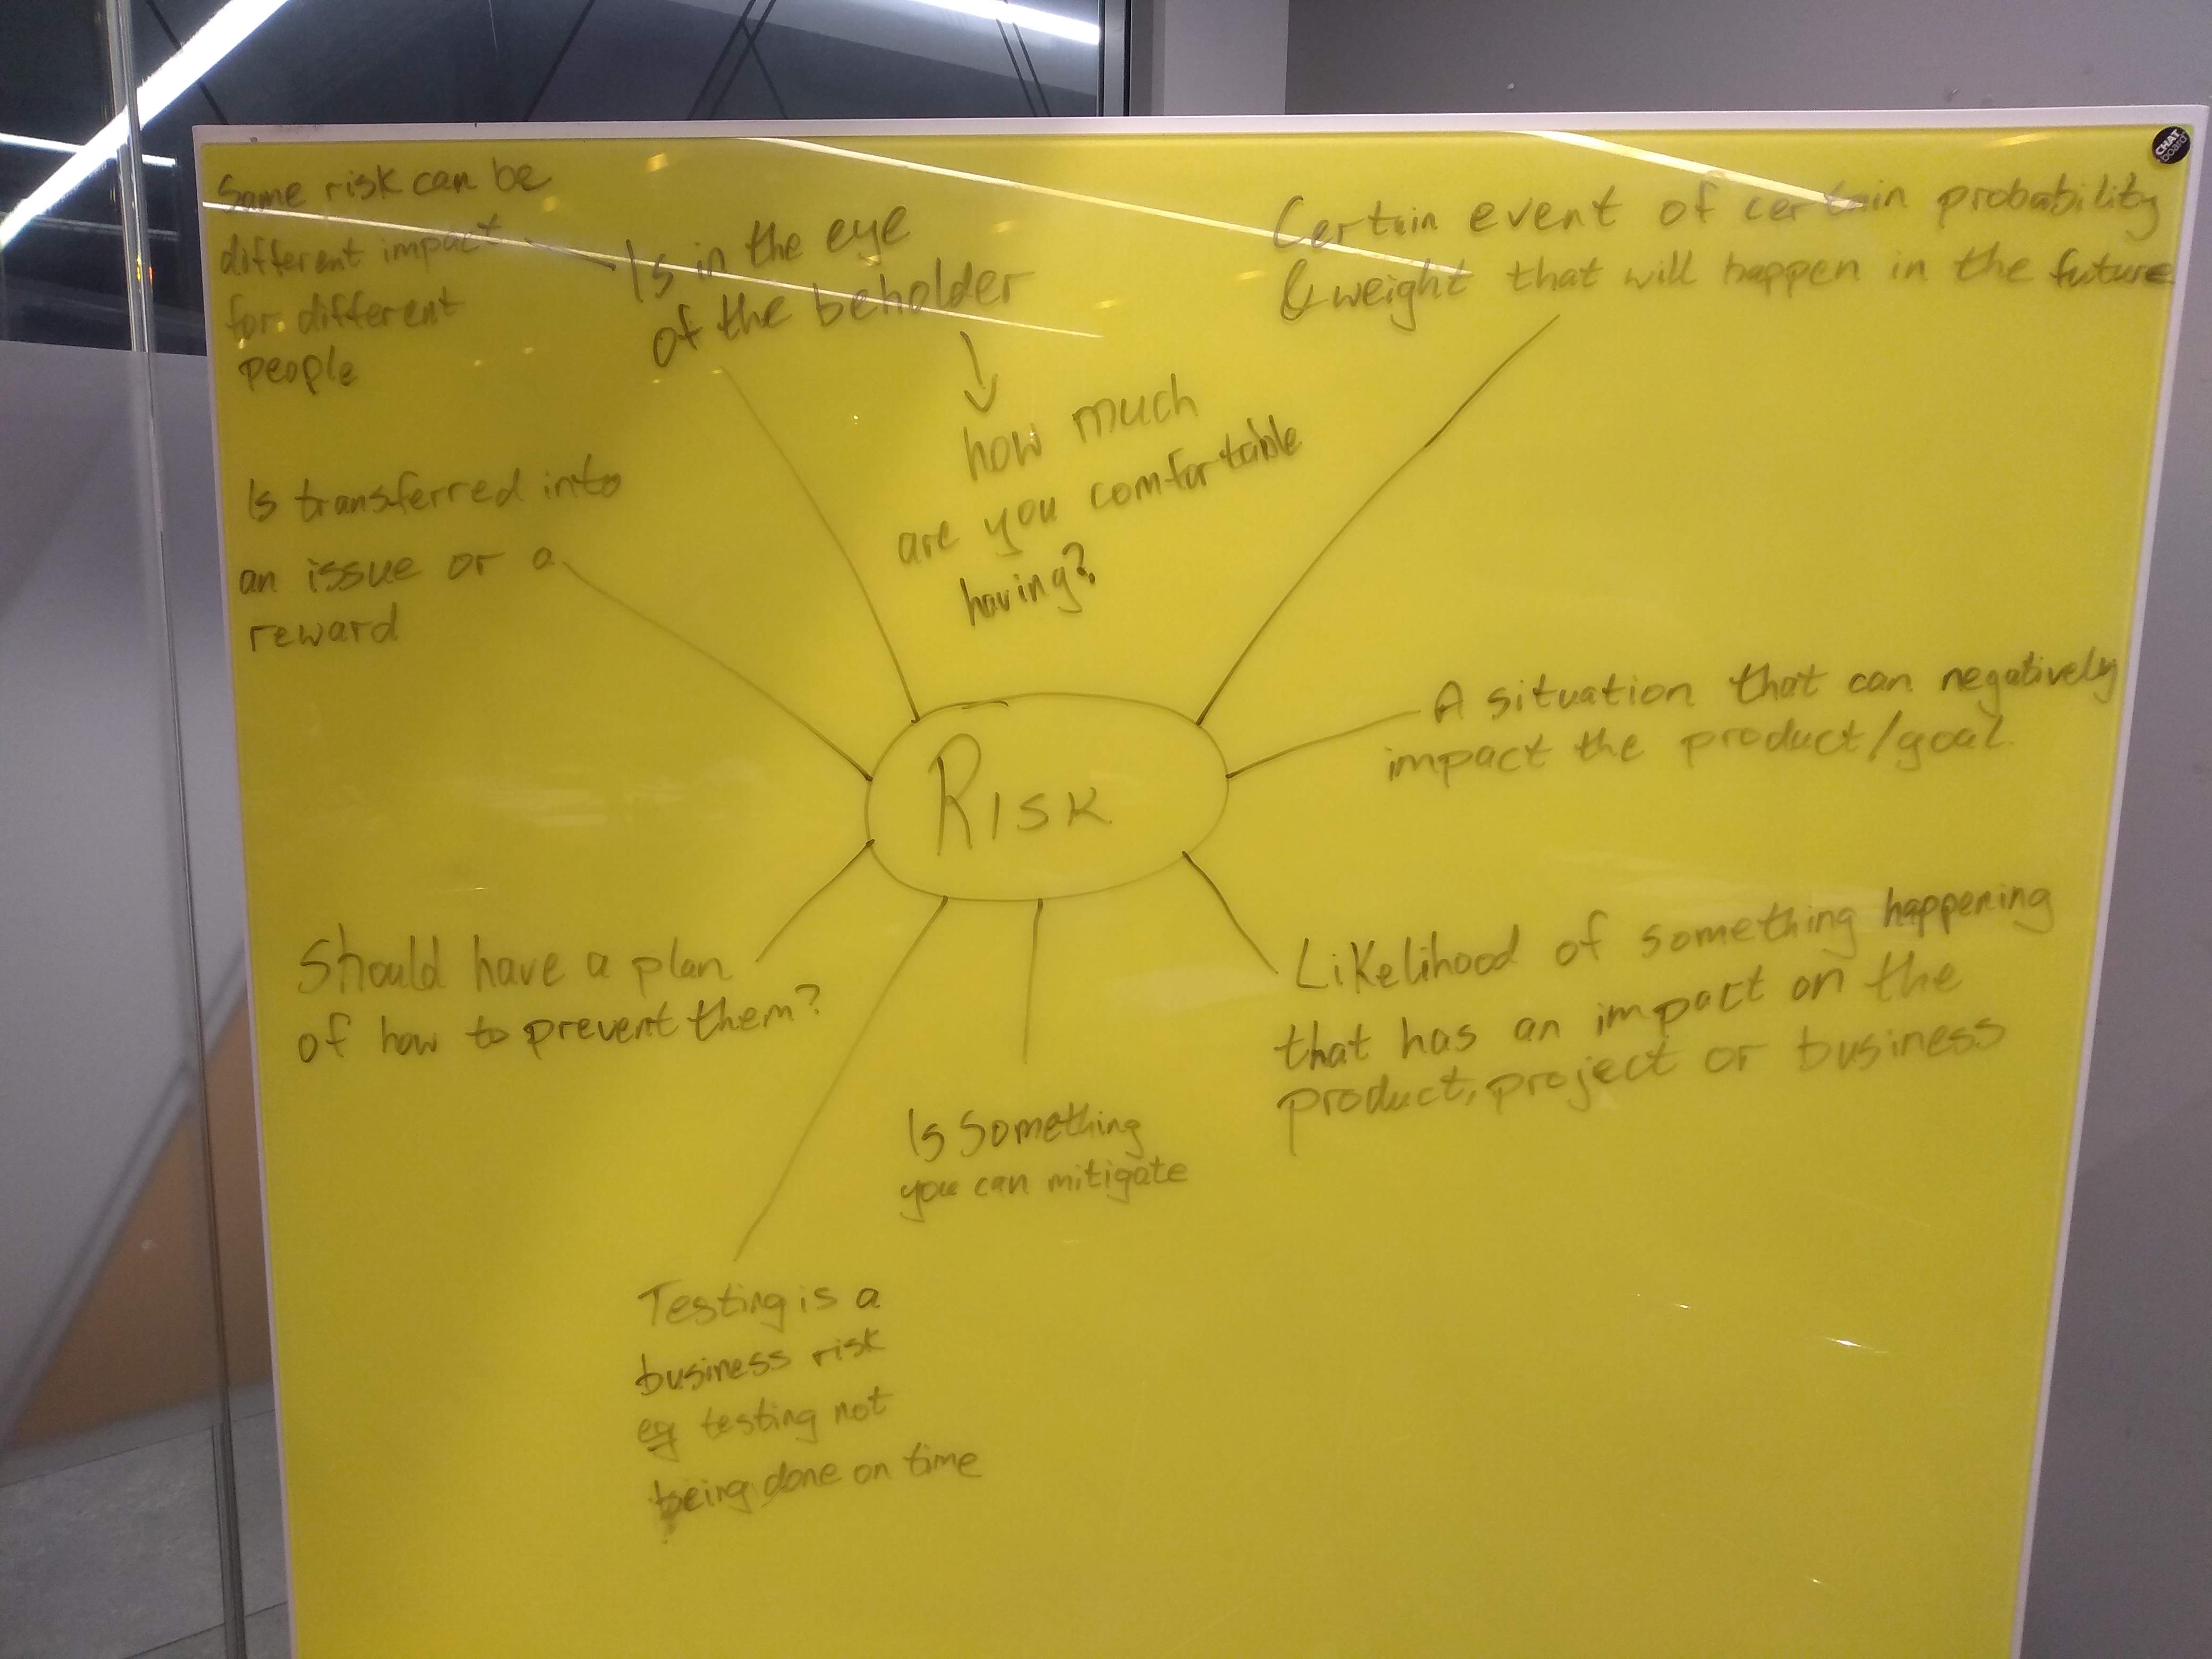 Same risk can be
different impact
for different
people
Is in the eye
of the beholder
how much
are you comfortable
having?
Certain event of certain probability
& weight that will happen in the future
CHAT
board
Is transferred into
an issue or a
reward
A situation that can negatively
impact the product/goal
RISK
Should have a plan
of how to prevent them?
Likelihood of something happening
that has an impact on the
product, project or business
Is Something
you can mitigate
Testing is a
business risk
eg testing not
being done on time